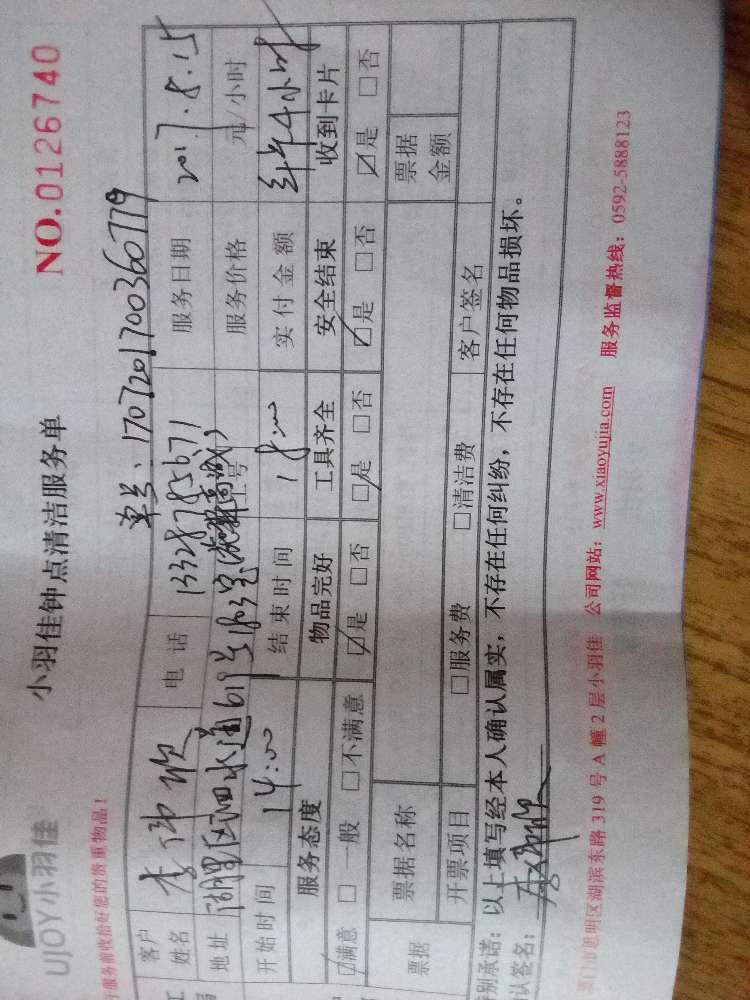 UJOY小羽佳
小羽佳钟点清洁服务单
NO.0126740
服务前收拾好您的贵重物品！
单号：1707201700360779
客户姓名 李伟欣 电话 13328785671 服务日期 2017.8.15
地址 湖里区泗水道619号 工号 服务价格 元/小时
开始时间 14:00 结束时间 18:00 实付金额 4小时
服务态度 物品完好 工具齐全 安全结束 收到卡片
☑满意 □一般 □不满意 ☑是 □否 ☑是 □否 ☑是 □否 ☑是 □否
票据 票据名称 票据金额
开票项目 □服务费 □清洁费 客户签名
别承诺：以上填写经本人确认属实，不存在任何纠纷，不存在任何物品损坏。
认签名：
厦门市思明区湖滨东路319号A幢2层小羽佳 公司网站：www.xiaoyujia.com 服务监督热线：0592-5888123